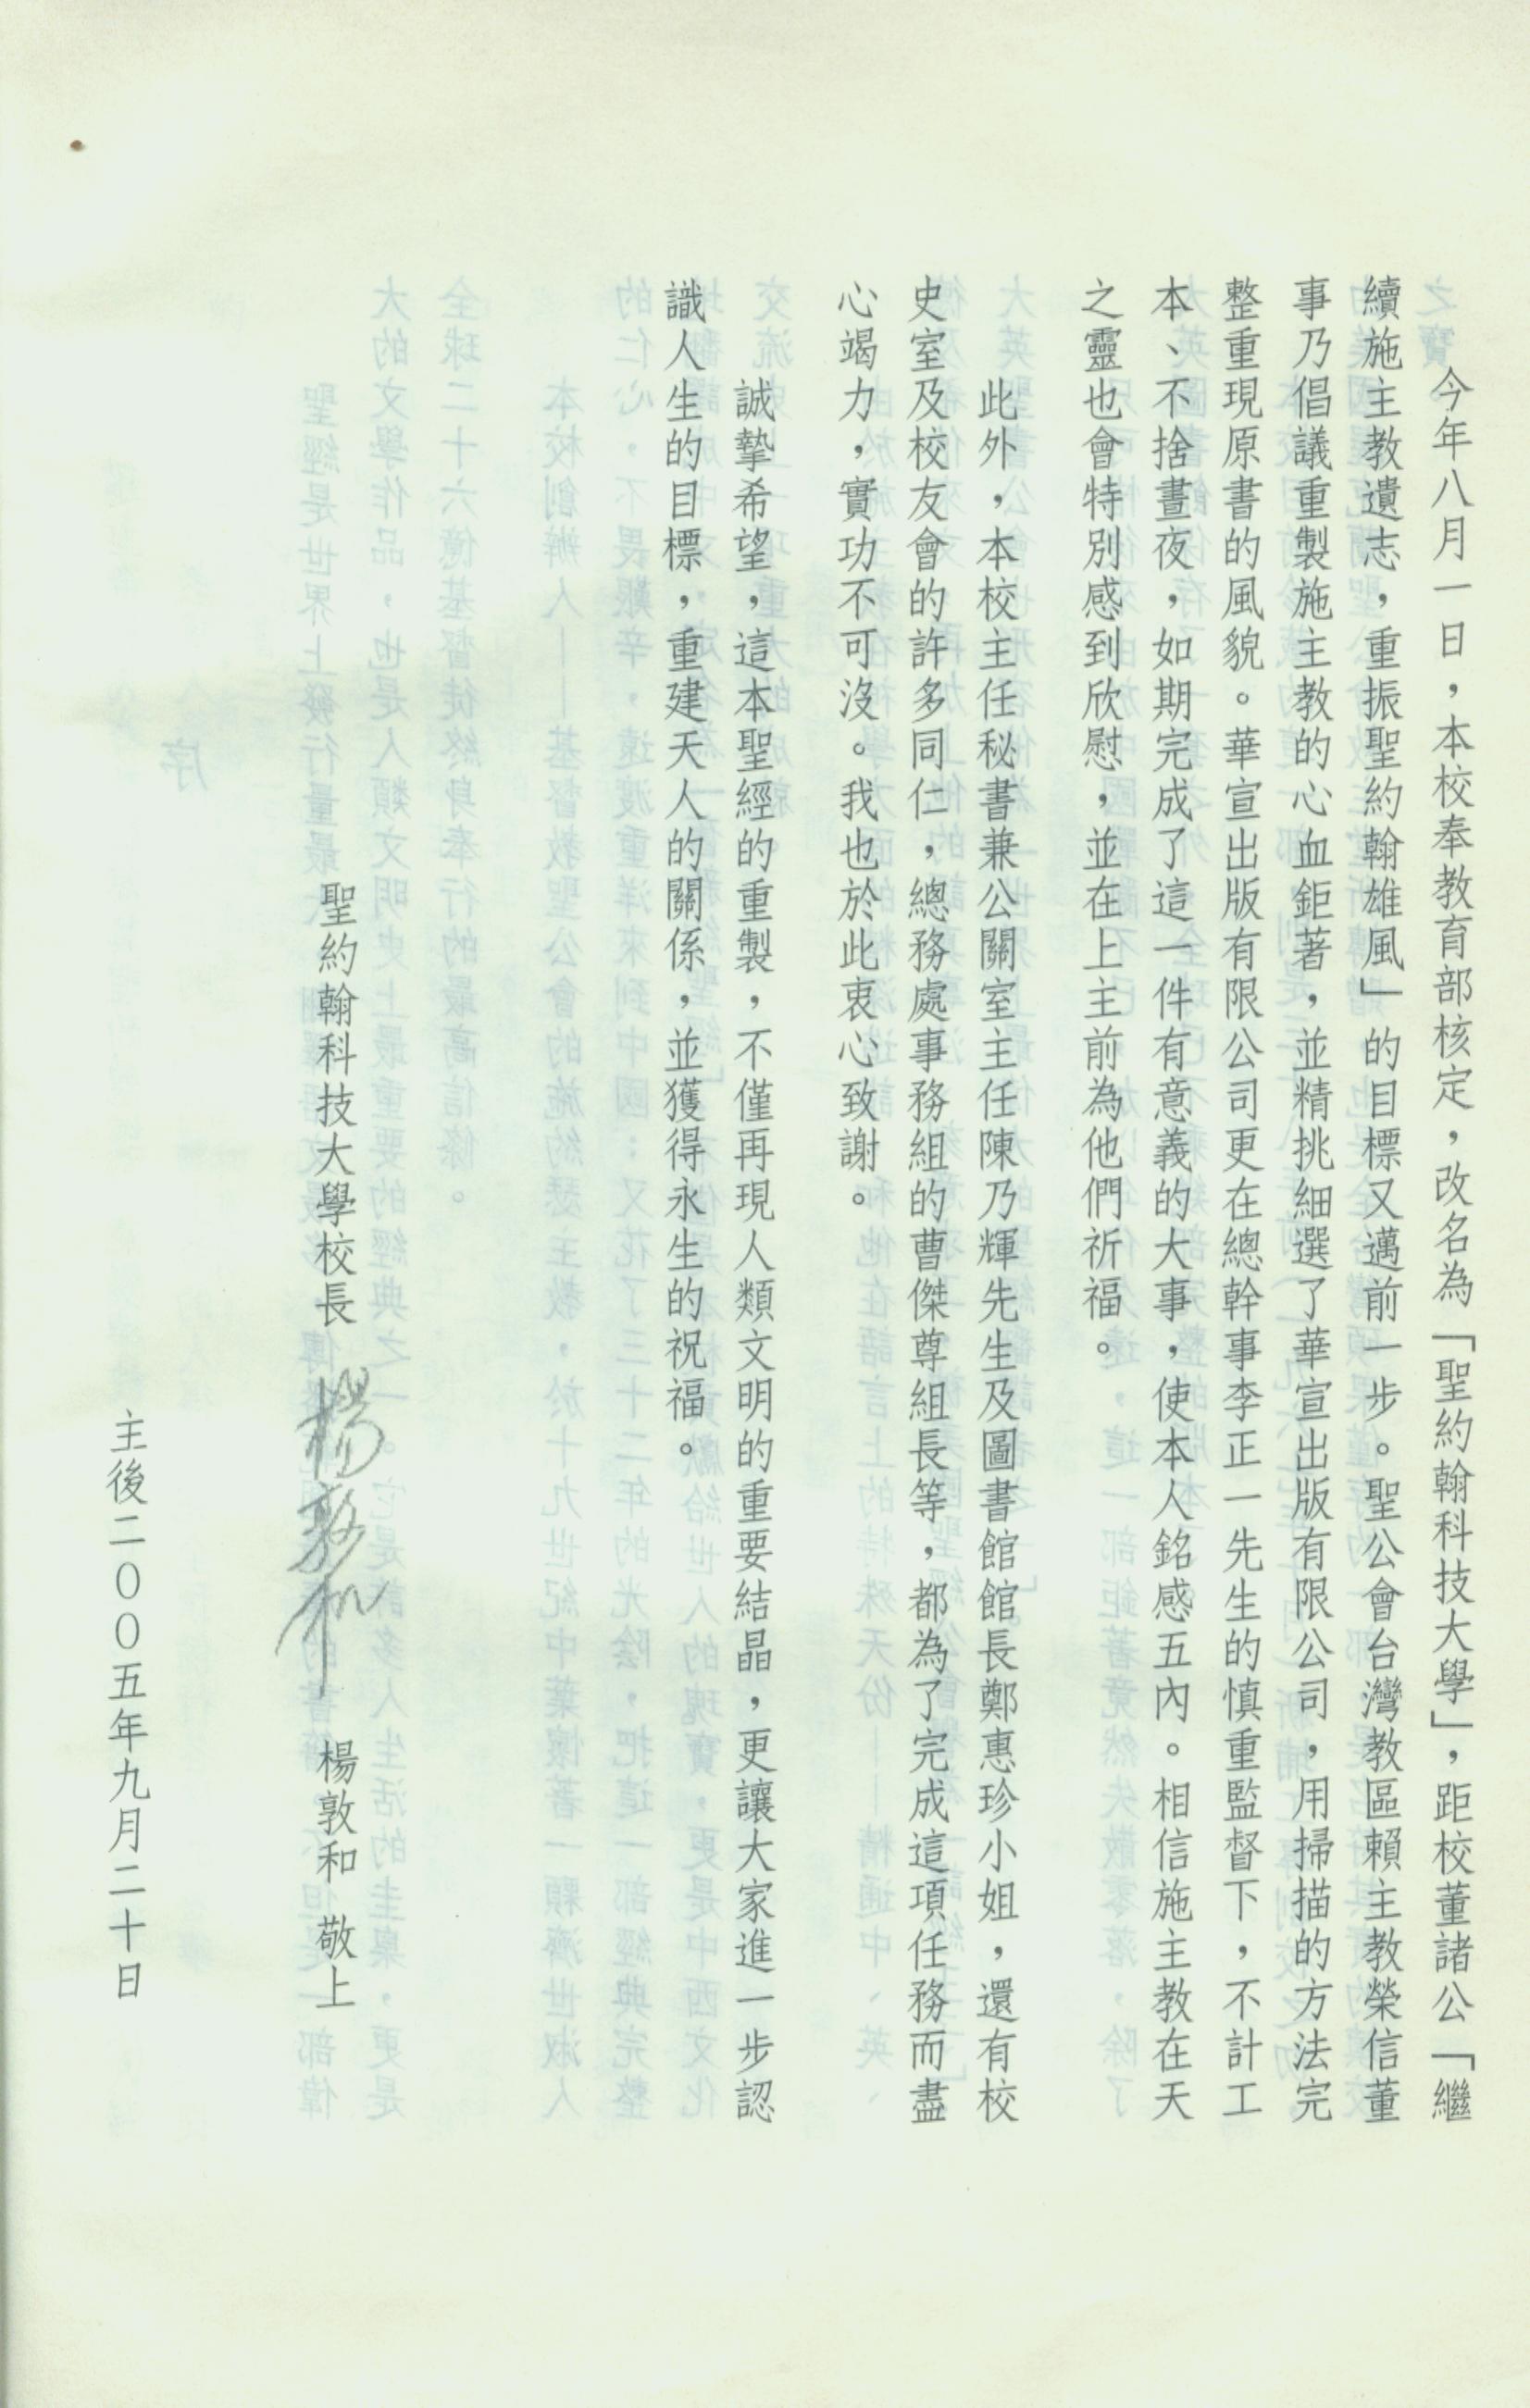 今年八月一日，本校奉教育部核定，改名為「聖約翰科技大學」，距校董諸公「繼
續施主教遺志，重振聖約翰雄風」的目標又邁前一步。聖公會台灣教區賴主教榮信董
事乃倡議重製施主教的心血鉅著，並精挑細選了華宣出版有限公司，用掃描的方法完
整重現原書的風貌。華宣出版有限公司更在總幹事李正一先生的慎重監督下，不計工
本、不捨晝夜，如期完成了這一件有意義的大事，使本人銘感五內。相信施主教在天
之靈也會特別感到欣慰，並在上主前為他們祈福。
此外，本校主任秘書兼公關室主任陳乃輝先生及圖書館館長鄭惠珍小姐，還有校
史室及校友會的許多同仁，總務處事務組的曹傑尊組長等，都為了完成這項任務而盡
心竭力，實功不可沒。我也於此衷心致謝。
誠摯希望，這本聖經的重製，不僅再現人類文明的重要結晶，更讓大家進一步認
識人生的目標，重建天人的關係，並獲得永生的祝福。
聖約翰科技大學校長 楊敦和 楊敦和 敬上
主後二００五年九月二十日